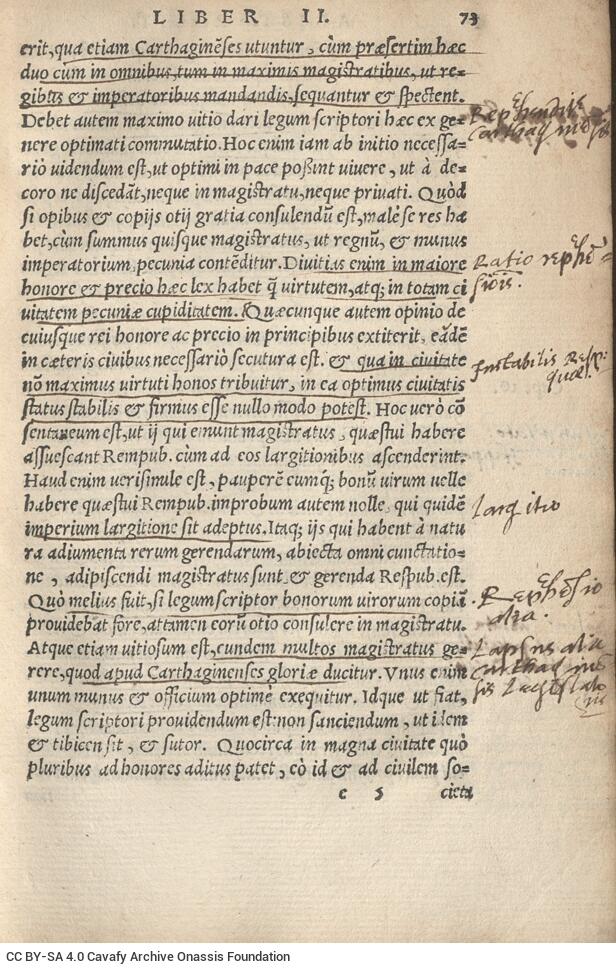 LIBER II. 73
erit, qua etiam Carthaginēses utuntur, cùm præsertim hæc
duo cùm in omnibus, tum in maximis magistratibus, ut re-
gibus & imperatoribus mandandis, sequantur & spectent.
Debet autem maximo uitio dari legum scriptori hæc ex ge-
nere optimati commutatio. Hoc enim iam ab initio necessa-
riò uidendum est, ut optimi in pace possint uiuere, ut à de-
coro ne discedāt, neque in magistratu, neque priuati. Quòd
si opibus & copijs otij gratia consulendū est, malè se res ha
bet, cùm summus quisque magistratus, ut regnū, & munus
imperatorium, pecunia contēditur. Diuitias enim in maiore
honore & precio hæc lex habet q̄ uirtutem, atq; in totam ci
uitatem pecuniæ cupiditatem. Quæcunque autem opinio de
cuiusque rei honore ac precio in principibus extiterit, eādē
in cæteris ciuibus necessariò secutura est. & qua in ciuitate
nō maximus uirtuti honos tribuitur, in ea optimus ciuitatis
status stabilis & firmus esse nullo modo potest. Hoc uerò cō
sentaneum est, ut ij qui emunt magistratus, quæstui habere
assuescant Rempub. cum ad eos largitionibus ascenderint.
Haud enim uerisimile est, pauperē cumq; bonū uirum uelle
habere quæstui Rempub. improbum autem nolle, qui quidē
imperium largitione sit adeptus. Itaq; ijs qui habent à natu
ra adiumenta rerum gerendarum, abiecta omni cunctatio-
ne, adipiscendi magistratus sunt, & gerenda Respub. est.
Quò melius fuit, si legum scriptor bonorum uirorum copiā
prouidebat fore, attamen eorū otio consulere in magistratu.
Atque etiam uitiosum est, eundem multos magistratus ge-
rere, quod apud Carthaginenses gloriæ ducitur. Vnus enim
unum munus & officium optimè exequitur. Idque ut fiat,
legum scriptori prouidendum est: non sanciendum, ut idem
& tibicen sit, & sutor. Quocirca in magna ciuitate quò
pluribus ad honores aditus patet, eò id & ad ciuilem so-
e 5 cieta
Ratio rephē=
sioīs.
Instabilis Resp:
quæ.
largitio
Rephēsio
alia.
Lapsus alius
CC BY-SA 4.0 Cavafy Archive Onassis Foundation